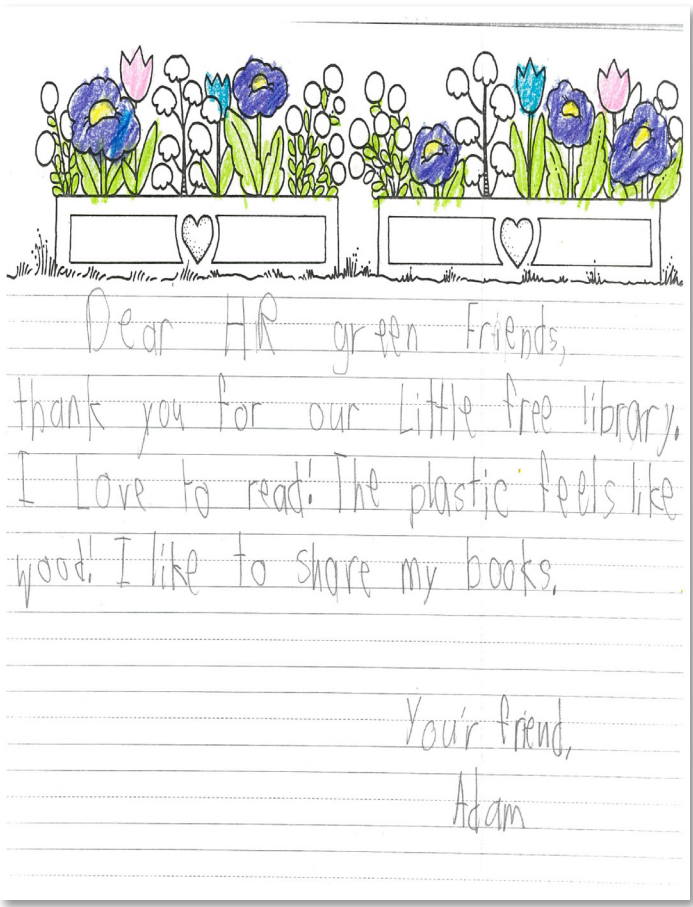 Dear HR green Friends,
thank you for our Little free library.
I Love to read! The plastic feels like
wood! I like to share my books.
You'r friend,
Adam